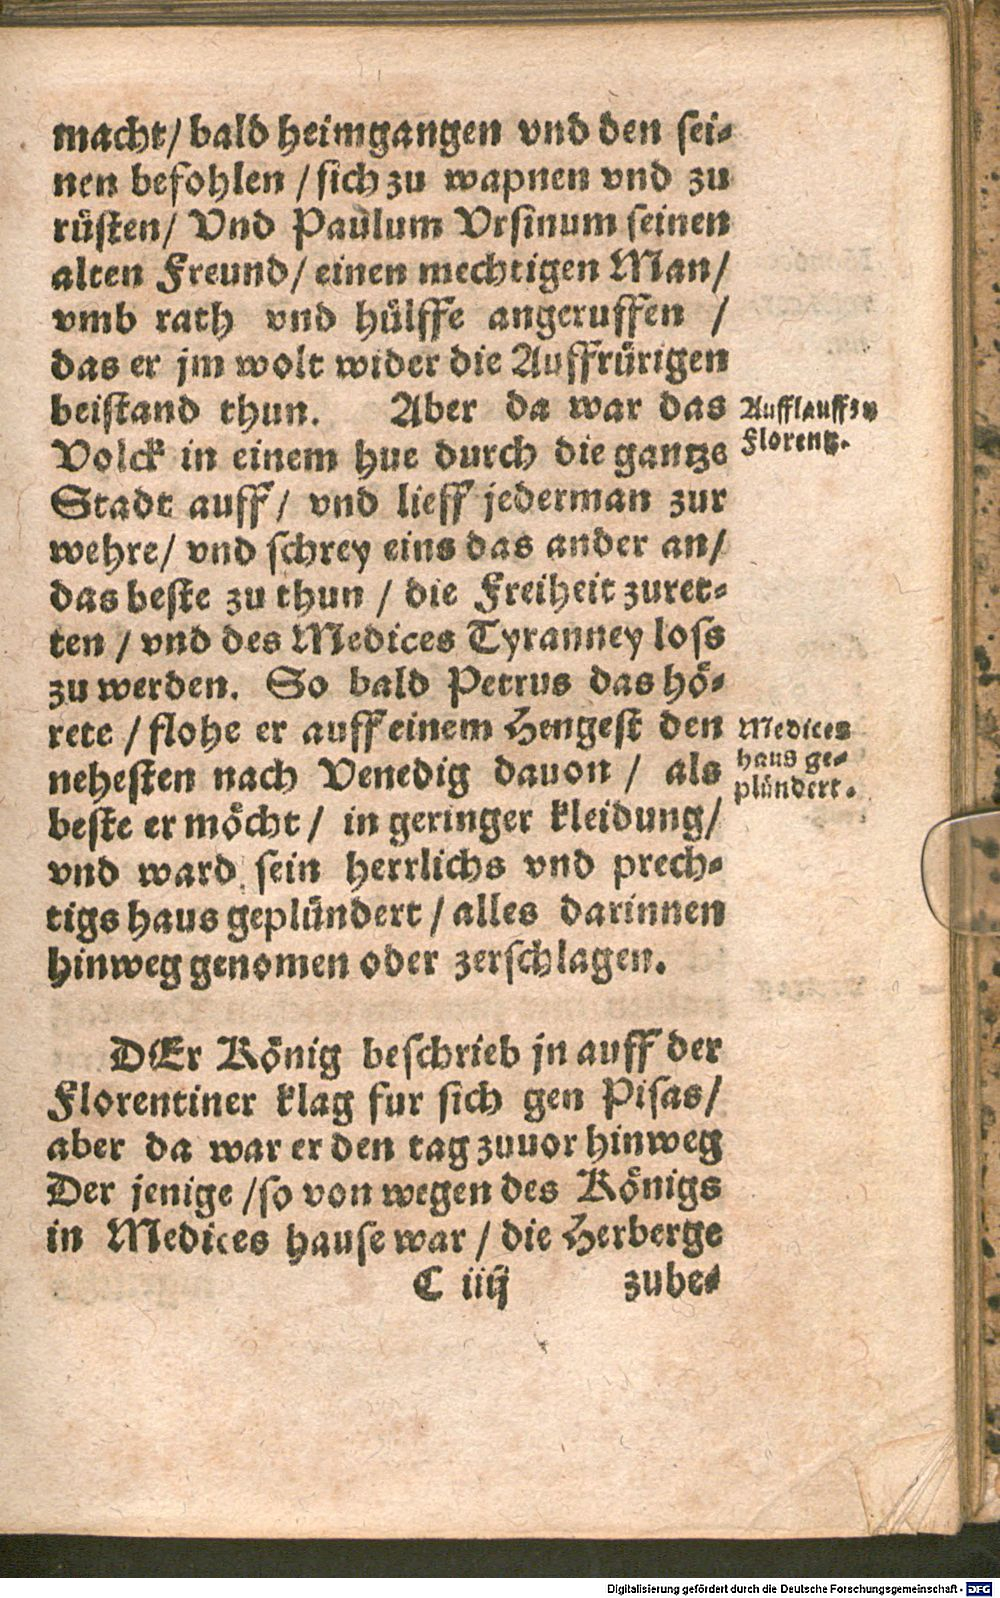 macht/ bald heimgangen vnd den sei-
nen befohlen / sich zu wapnen vnd zu
rüsten/ Vnd Paulum Vrsinum seinen
alten Freund/ einen mechtigen Man/
vmb rath vnd hülffe angeruffen /
das er jm wolt wider die Auffrürigen
beistand thun. Aber da war das
Volck in einem hue durch die gantze
Stadt auff/ vnd lieff jederman zur
wehre/ vnd schrey eins das ander an/
das beste zu thun / die Freiheit zuret-
ten / vnd des Medices Tyranney loss
zu werden. So bald Petrus das hö-
rete / flohe er auff einem Hengest den
nehesten nach Venedig dauon / als
beste er möcht/ in geringer kleidung/
vnd ward sein herrlichs vnd prech-
tigs haus geplündert / alles darinnen
hinweg genomen oder zerschlagen.
Aufflauff zu
Florentz.
Medices
haus ge-
plündert.
DEr König beschrieb jn auff der
Florentiner klag fur sich gen Pisas/
aber da war er den tag zuuor hinweg
Der jenige /so von wegen des Königs
in Medices hause war / die Herberge
C iiij zube-
Digitalisierung gefördert durch die Deutsche Forschungsgemeinschaft - DFG